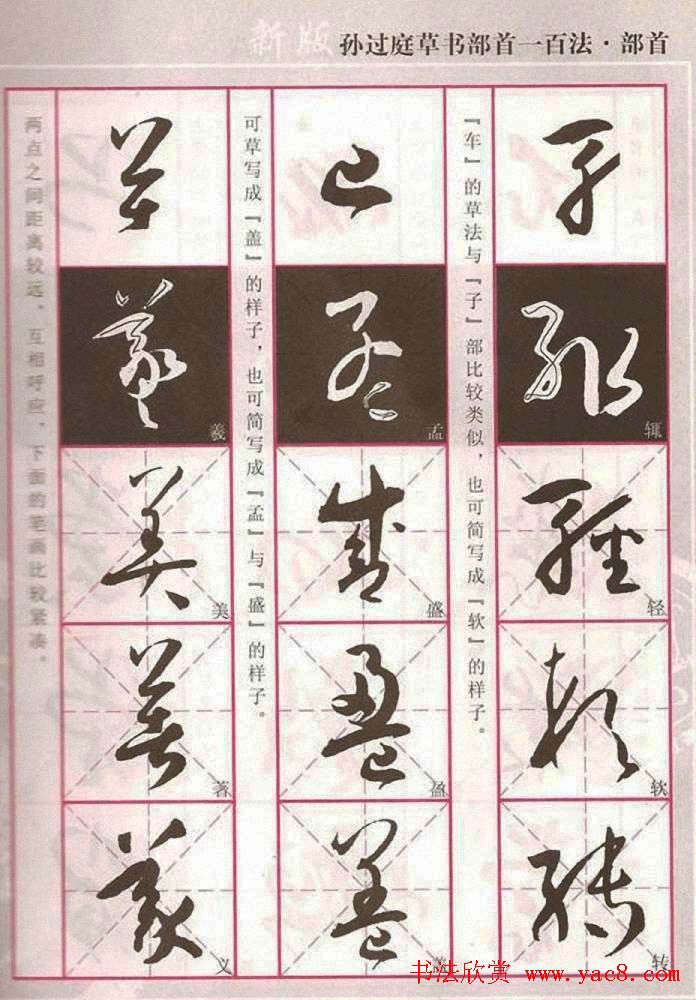 新版 孙过庭草书部首一百法·部首
辄
轻
软
转
『车』的草法与『子』部比较类似，也可简写成『软』的样子。
孟
盛
盈
盖
可草写成『盖』的样子，也可简写成『孟』与『盛』的样子。
羲
美
著
义
两点之间距离较远，互相呼应，下面的笔画比较紧凑。
书法欣赏 www.yac8.com